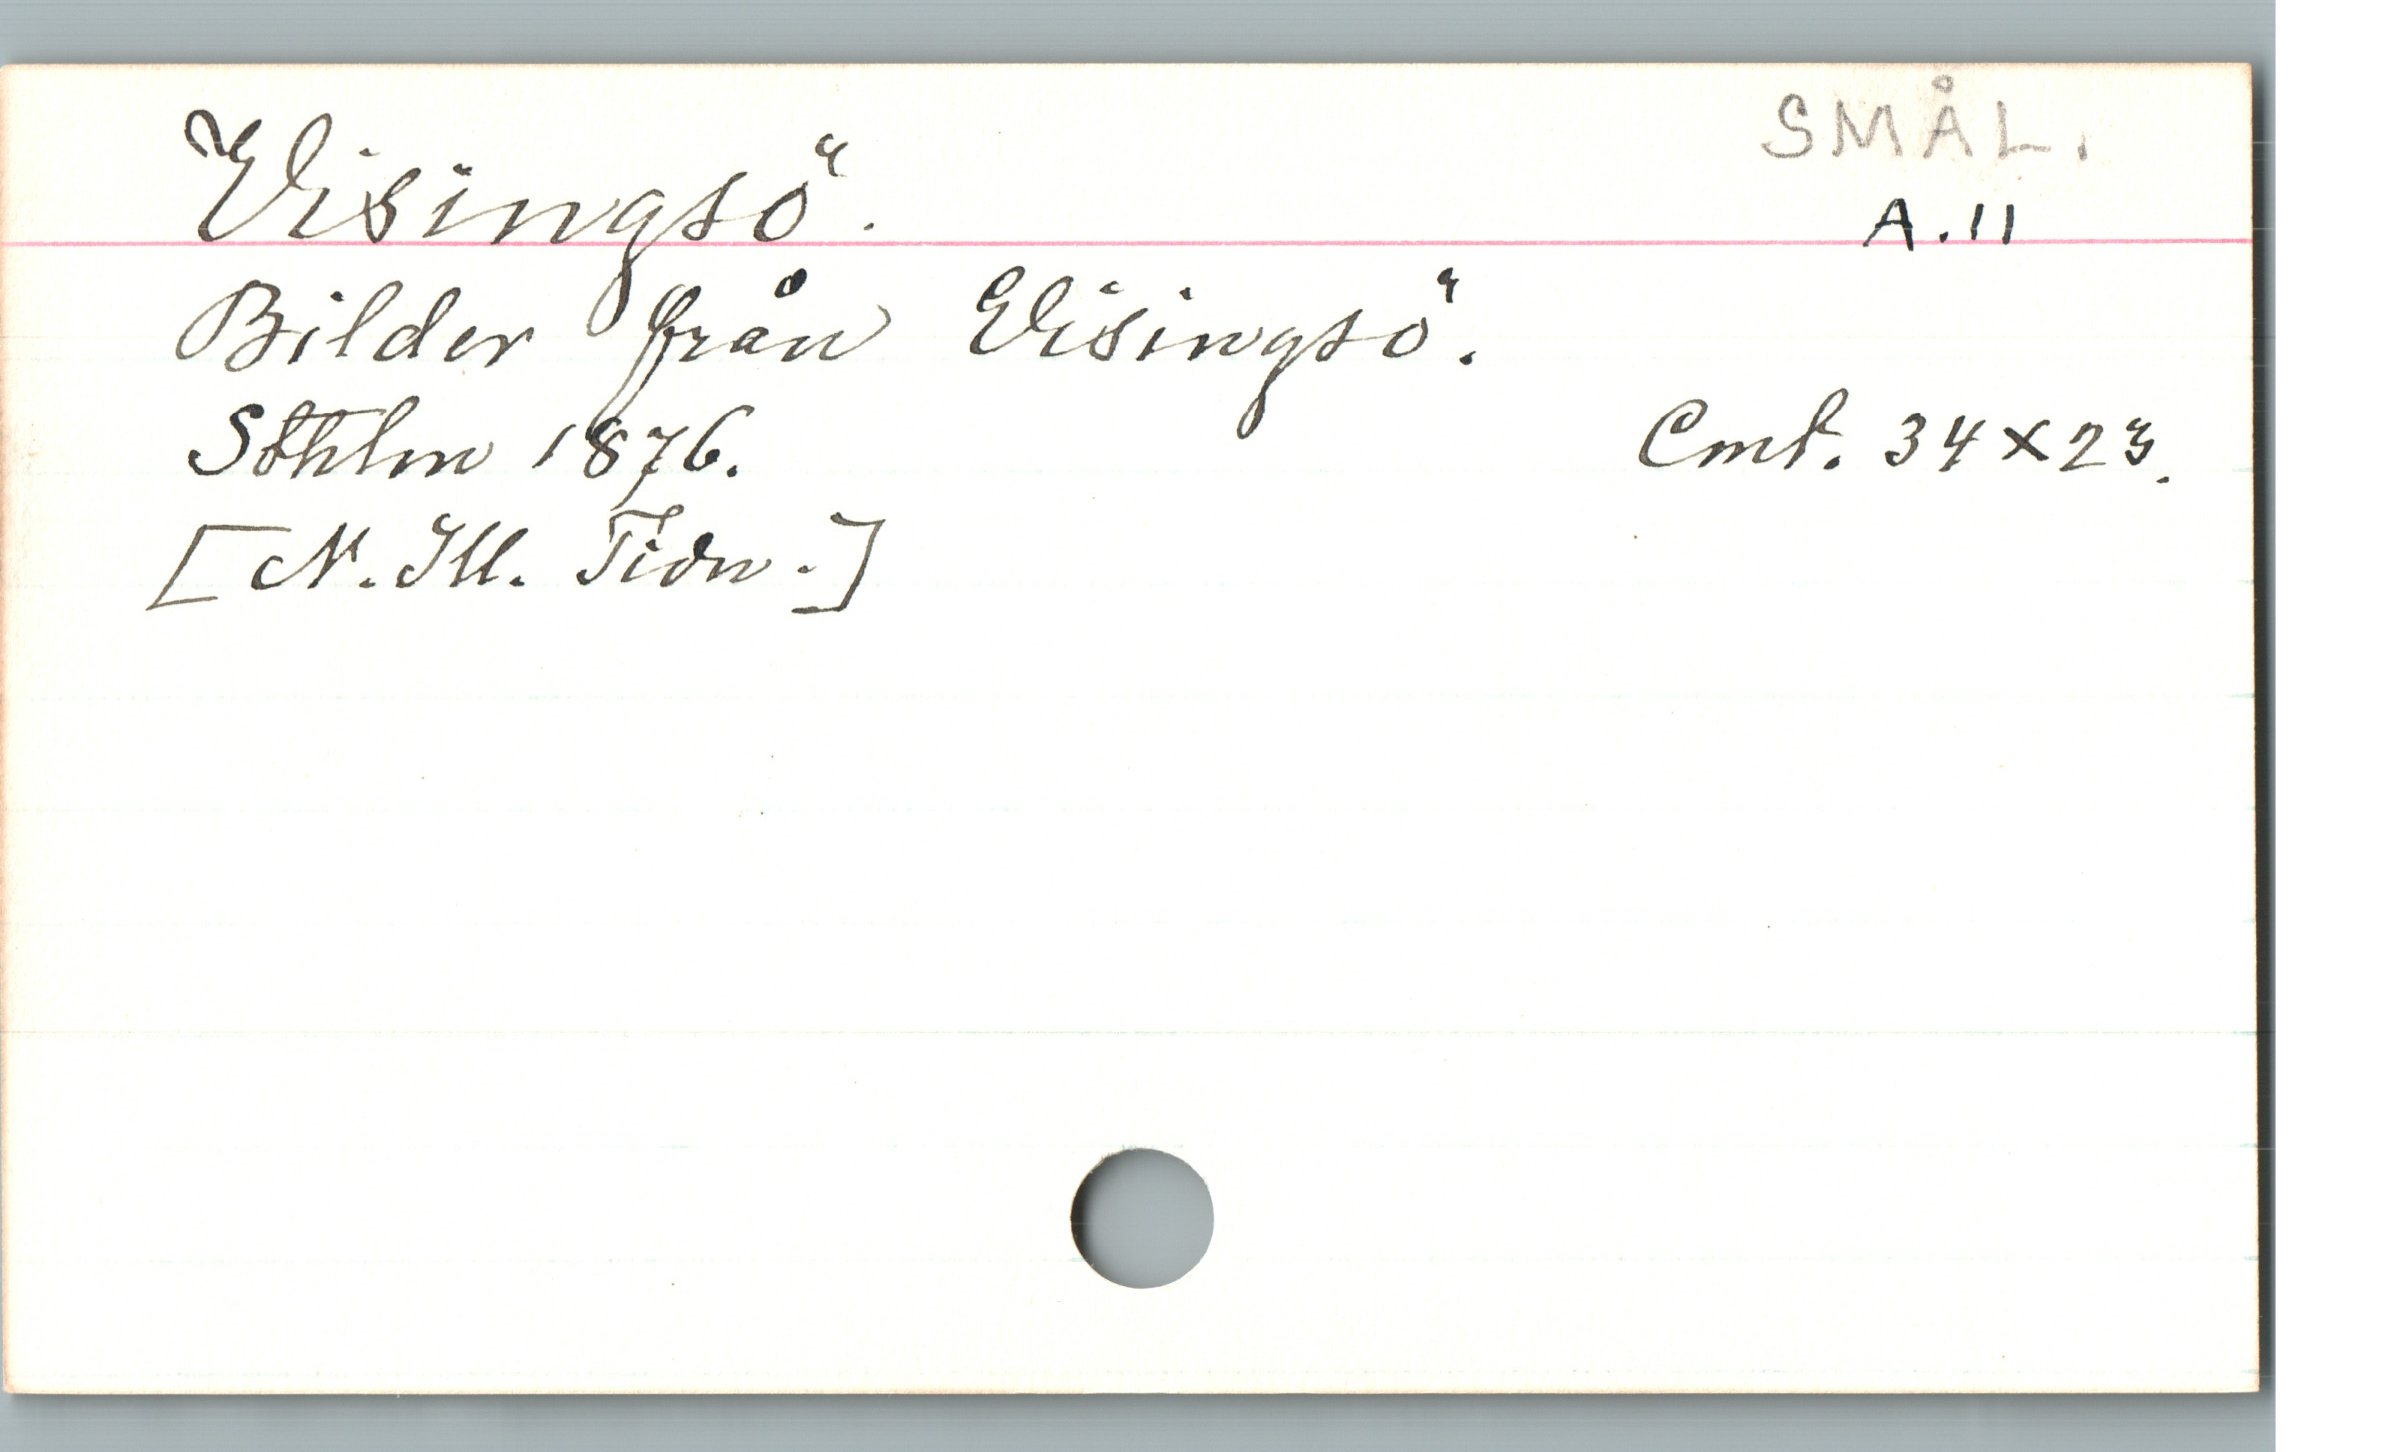 Visingsö.
SMÅL.
A.11
Bilder från Visingsö.
Sthlm 1876.
Cmf. 34x23.
[N. Ill. Tidn.]